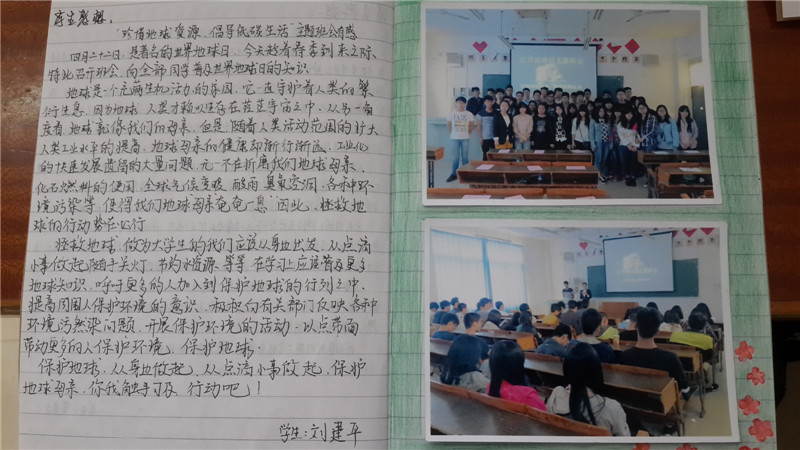 学生感想:
"珍惜地球资源,倡导低碳生活"主题班会有感
四月二十二日,是著名的世界地球日,今天趁着春季到来之际、
特此召开班会,向全部同学普及世界地球日的知识
地球是一个充满生机活力的家园,它一直守护着人类的繁
衍生息,因为地球,人类才赖以生存在茫茫宇宙之中,从另一角
度看,地球就像我们的母亲,但是,随着人类活动范围的扩大
人类工业水平的提高,地球母亲的健康却渐行渐远,工业化
的快速发展遗留的大量问题,无一不在折磨我们地球母亲、
化石燃料的使用,全球气候变暖,酸雨,臭氧空洞,各种环
境污染等,使得我们地球母亲奄奄一息"因此,拯救地
球的行动势在必行
拯救地球,做为大学生的我们应该从身边出发,从点滴
小事做起,随手关灯,节约水资源,等等,在学习上应该普及更多
地球知识,呼吁更多的人加入到保护地球的行列之中、
提高周围人保护环境的意识,积极向有关部门反映各种
环境污染问题,开展保护环境的活动,以点带面
带动更多的人保护环境,保护地球。
保护地球,从身边做起,从点滴小事做起,保护
地球母亲,你我触手可及,行动吧!
学生:刘建平